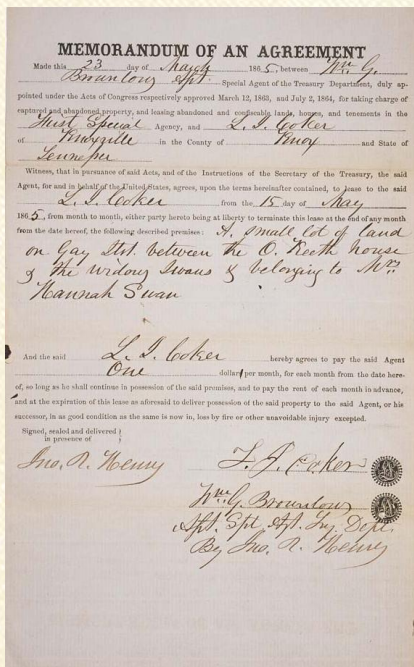 MEMORANDUM OF AN AGREEMENT
Made this 23 day of March 1865, between Wm G.
Brownlow Spt. Special Agent of the Treasury Department, duly ap-
pointed under the Acts of Congress respectively approved March 12, 1863, and July 2, 1864, for taking charge of
captured and abandoned property, and leasing abandoned and confiscable lands, houses, and tenements in the
First Special Agency, and L. J. Coker
of Knoxville in the County of Knox and State of
Tennessee
Witness, that in pursuance of said Acts, and of the Instructions of the Secretary of the Treasury, the said
Agent, for and in behalf of the United States, agrees, upon the terms hereinafter contained, to lease to the said
L. J. Coker from the 15 day of May
1865, from month to month, either party hereto being at liberty to terminate this lease at the end of any month
from the date hereof, the following described premises: A small lot of land
on Gay Strt. between the O. Keith house
& the widow Swans & belonging to Mrs
Hannah Swan
And the said L. J. Coker hereby agrees to pay the said Agent
One dollar per month, for each month from the date here-
of, so long as he shall continue in possession of the said premises, and to pay the rent of each month in advance,
and at the expiration of this lease as aforesaid to deliver possession of the said property to the said Agent, or his
successor, in as good condition as the same is now in, loss by fire or other unavoidable injury excepted.
Signed, sealed and delivered
in presence of
Jno. R. Henry
L. J. Coker
Wm. G. Brownlow
Spt. Agt. Try. Dept.
By Jno. R. Henry